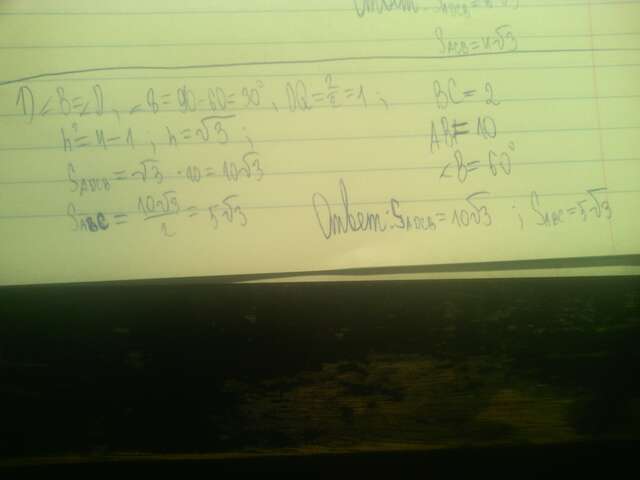 Ответ: S
S_ACB = 4√3
1) ∠B=∠D, ∠B = 90-60=30°, DQ = 2/2 = 1;
h² = 4-1; h = √3;
S_ADCB = √3 · 10 = 10√3
S_ABC = 10√3/2 = 5√3
BC = 2
AB = 10
∠B = 60°
Ответ: S_ADCB = 10√3; S_ABC = 5√3